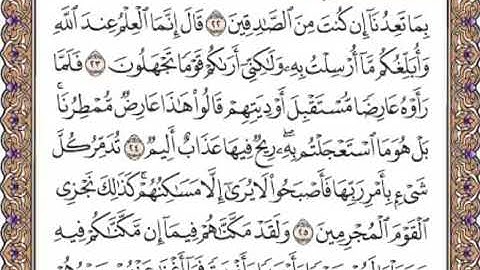 بِمَا تَعِدُنَآ إِن كُنتَ مِنَ ٱلصَّـٰدِقِينَ ٢٢ قَالَ إِنَّمَا ٱلْعِلْمُ عِندَ ٱللَّهِ
وَأُبَلِّغُكُم مَّآ أُرْسِلْتُ بِهِۦ وَلَـٰكِنِّىٓ أَرَىٰكُمْ قَوْمًا تَجْهَلُونَ ٢٣ فَلَمَّا
رَأَوْهُ عَارِضًا مُّسْتَقْبِلَ أَوْدِيَتِهِمْ قَالُوا۟ هَـٰذَا عَارِضٌ مُّمْطِرُنَا ۚ
بَلْ هُوَ مَا ٱسْتَعْجَلْتُم بِهِۦ ۖ رِيحٌ فِيهَا عَذَابٌ أَلِيمٌ ٢٤ تُدَمِّرُ كُلَّ
شَىْءٍۭ بِأَمْرِ رَبِّهَا فَأَصْبَحُوا۟ لَا يُرَىٰٓ إِلَّا مَسَـٰكِنُهُمْ ۚ كَذَٰلِكَ نَجْزِى
ٱلْقَوْمَ ٱلْمُجْرِمِينَ ٢٥ وَلَقَدْ مَكَّنَّـٰهُمْ فِيمَآ إِن مَّكَّنَّـٰكُمْ فِيهِ